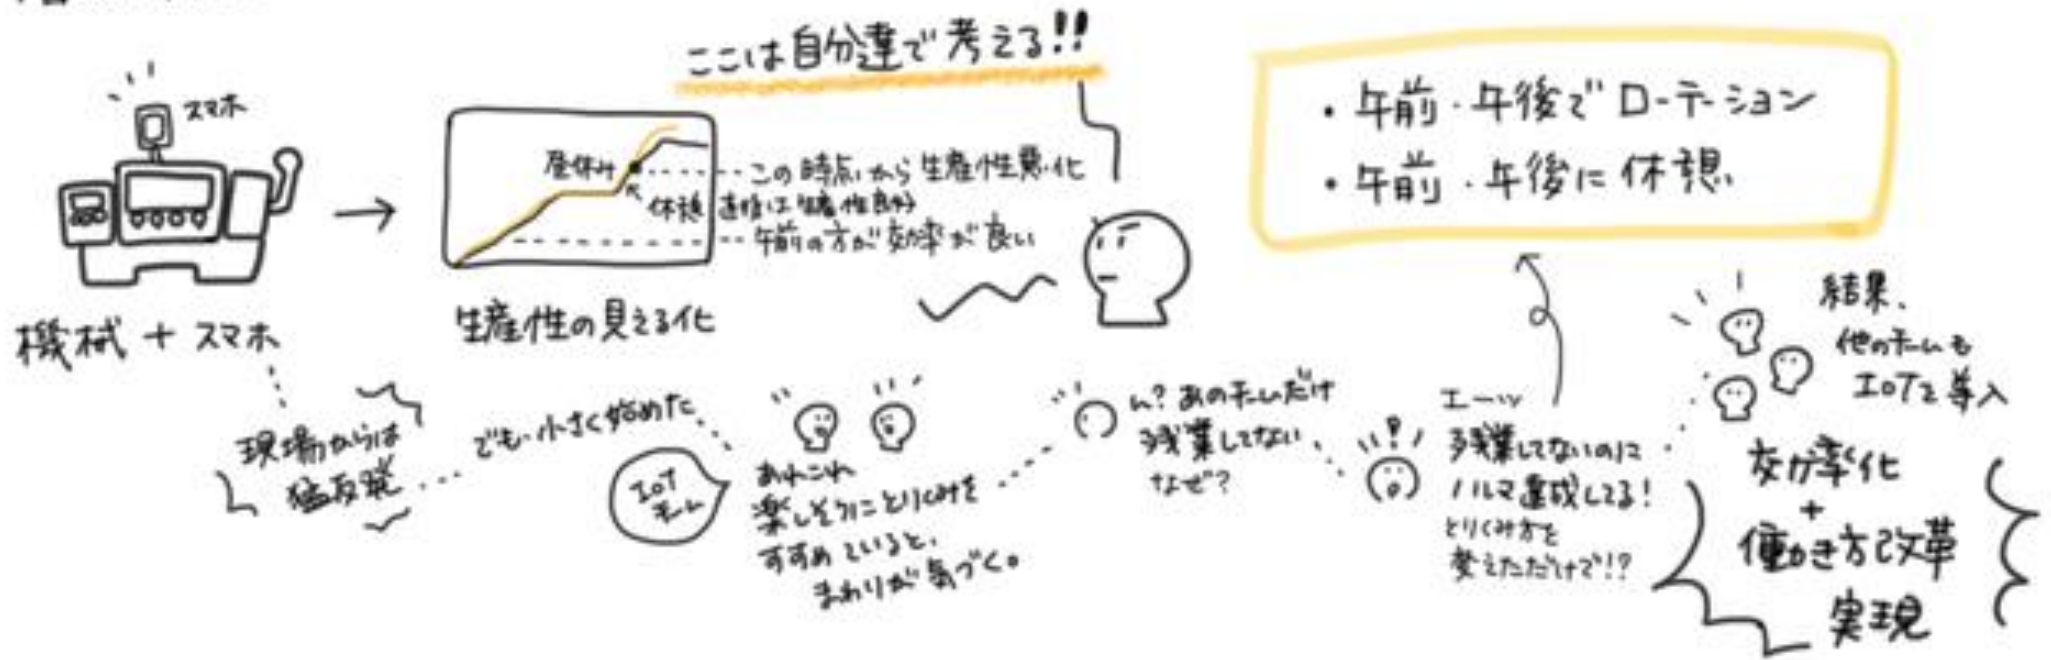 スマホ
機械 + スマホ
ここは自分達で考える!!
昼休み
この時点から生産性悪化
休憩直後は生産性良好
午前の方が効率が良い
生産性の見える化
・午前・午後でローテーション
・午前・午後に休憩
現場からは
猛反発
でも小さく始めた
IoT
チーム
あれこれ
楽しそうにとりくみを
すすめていると、
まわりが気づく。
ん?あのチームだけ
残業してない
なぜ?
エーッ
残業してないのに
ノルマ達成してる!
とりくみ方を
変えただけで!?
結果、
他のチームも
IoTを導入
効率化
+
働き方改革
実現